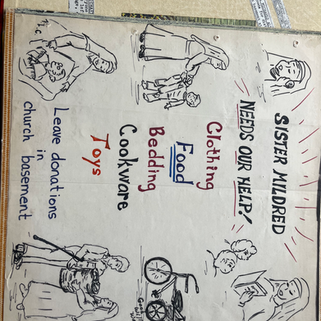 SISTER MILDRED
NEEDS OUR HELP!
Clothing
Food
Bedding
Cookware
Toys
Leave donations
in
church basement